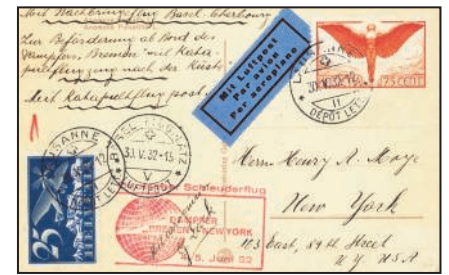 Mit Nachbringeflug Basel-Cherbourg
Zur Beförderung ab Bord des
Dampfers "Bremen" mit Kata-
pultflugzeug nach der Küste
Mit Katapultflugpost
Mit Luftpost
Par avion
Per aeroplano
LAUSANNE
30.V.32-12
II
DÉPÔT LETT.
75 CENT
LAUSANNE
12
LETT.
BASEL FLUGPLATZ
30.V.32-15
V
LUFTPOST
25
Schleuderflug
DAMPFER
"BREMEN"-NEW YORK
5. Juni 32
Herrn Henry A. Meye
New York
163 East, 89th Street
N.Y. U.S.A